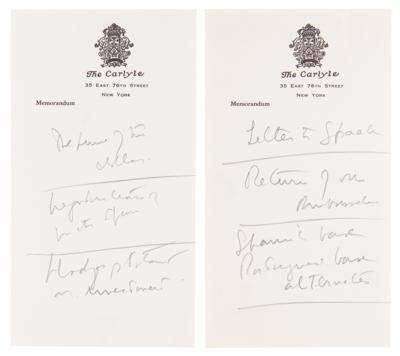 The Carlyle
35 East 76th Street
New York
Memorandum
The dollar.
Negotiations
with Spain
Hodges
on investment
The Carlyle
35 East 76th Street
New York
Memorandum
Letter to Spaak
Return of our
Ambassador
Spanish base
Portuguese base
alternates